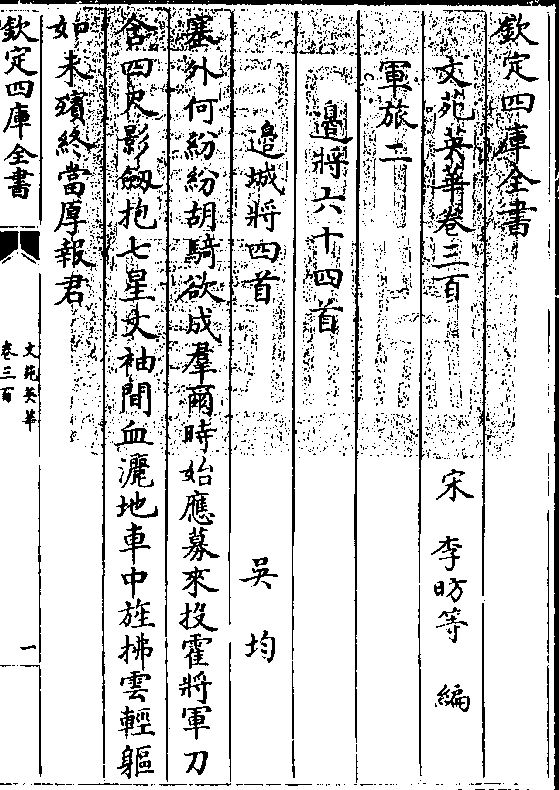 欽定四庫全書
文苑英華卷三百
宋 李昉等 編
軍旅二
邉將六十四首
邉城將四首 吳均
塞外何紛紛胡騎欲成羣爾時始應募來投霍將軍刀
含四尺影劔抱七星文袖間血灑地車中旌拂雲輕軀
如未殯終當厚報君
欽定四庫全書
文苑英華
卷三百
一